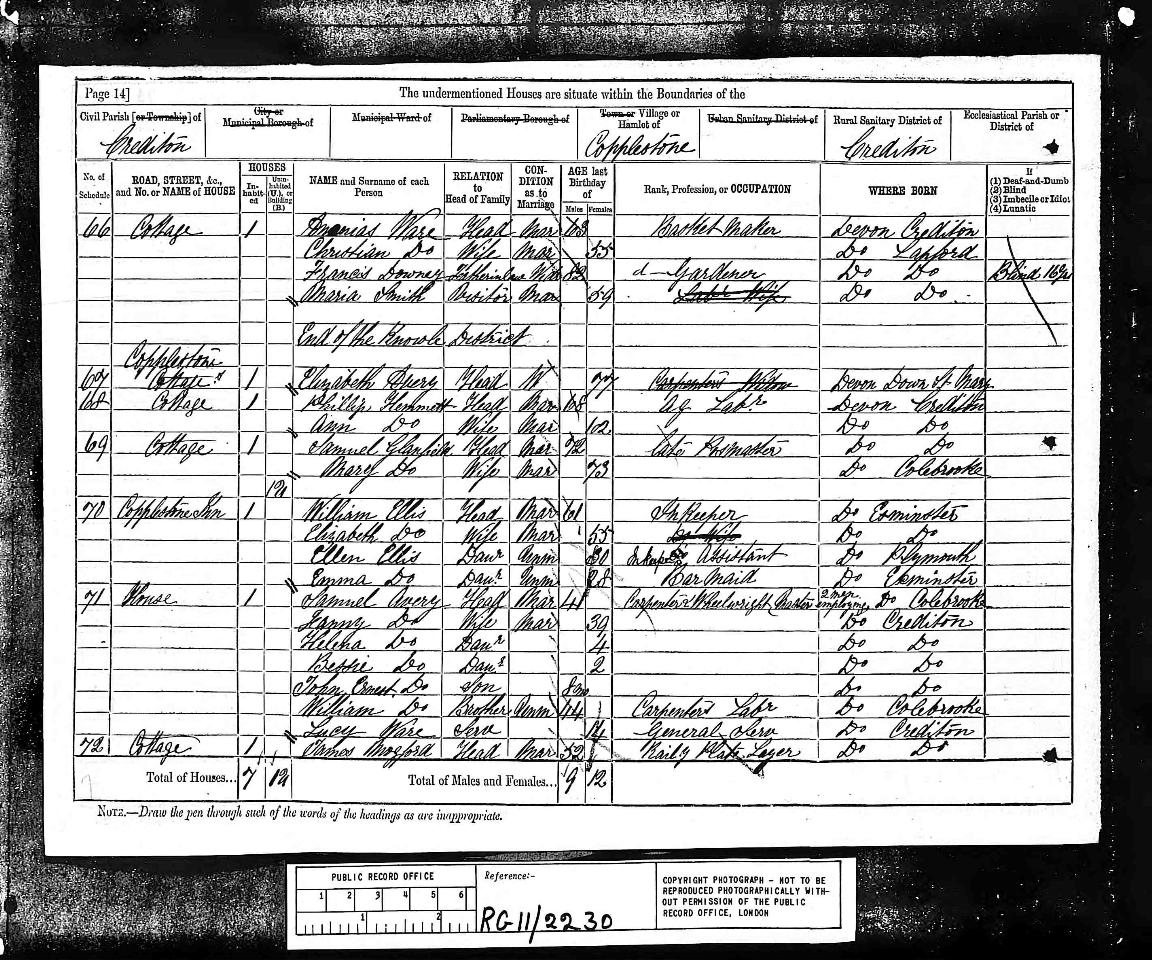 Page 14]
The undermentioned Houses are situate within the Boundaries of the
Civil Parish [or Township] of
City or Municipal Borough of
Municipal Ward of
Parliamentary Borough of
Town or Village or Hamlet of
Urban Sanitary District of
Rural Sanitary District of
Ecclesiastical Parish or District of
Crediton Copplestone Crediton
No. of Schedule
ROAD, STREET, &c., and No. or NAME of HOUSE
HOUSES
Inhabited
Uninhabited (U.), or Building (B.)
NAME and Surname of each Person
RELATION to Head of Family
CONDITION as to Marriage
AGE last Birthday of
Males Females
Rank, Profession, or OCCUPATION
WHERE BORN
If
(1) Deaf-and-Dumb
(2) Blind
(3) Imbecile or Idiot
(4) Lunatic
66 Cottage 1 Ananias Ware Head Mar 63 Basket Maker Devon Crediton
Christian Do Wife Mar 55 Do Lapford
Francis Downey Fatherinlaw Wid 82 Gardener Do Do Blind
Maria Smith Visitor Mar 59 Labr Wife Do Do
End of the Knowle District
Copplestone
67 Cottages 1 Elizabeth Avery Head W 77 Carpenters Widow Devon Down St Mary
68 Cottage 1 Phillip Hemmott Head Mar 68 Ag Labr Devon Crediton
Ann Do Wife Mar Do Do
69 Cottage 1 Samuel Glanfield Head Mar 72 late Posmaster Do Do
Mary Do Wife Mar 73 Do Colebrooke
1u
70 Copplestone Inn 1 William Ellis Head Mar 61 InKeeper Do Exminster
Elizabeth Do Wife Mar 55 Do Wife Do Do
Ellen Ellis Daur Unm 30 Inkeepers Assistant Do Plymouth
Emma Do Daur Unm 28 Bar Maid Do Exminster
71 House 1 Samuel Avery Head Mar 41 Carpenter & Wheelwright Master 2 men employing Do Colebrooke
Fanny Do Wife Mar 39 Do Crediton
Helena Do Daur 4 Do Do
Bessie Do Daur 2 Do Do
John Ernest Do Son 8mo Do Do
William Do Brother Unm 44 Carpenters Labr Do Colebrooke
Lucy Ware Serv 14 General Serv Do Crediton
72 Cottage 1 James Mogford Head Mar 52 Raily Plate Layer Do Do
Total of Houses... 7 1u Total of Males and Females... 9 12
NOTE.—Draw the pen through such of the words of the headings as are inappropriate.
PUBLIC RECORD OFFICE
1 2 3 4 5 6
1 2
Reference:-
RG 11/2230
COPYRIGHT PHOTOGRAPH - NOT TO BE
REPRODUCED PHOTOGRAPHICALLY WITH-
OUT PERMISSION OF THE PUBLIC
RECORD OFFICE, LONDON